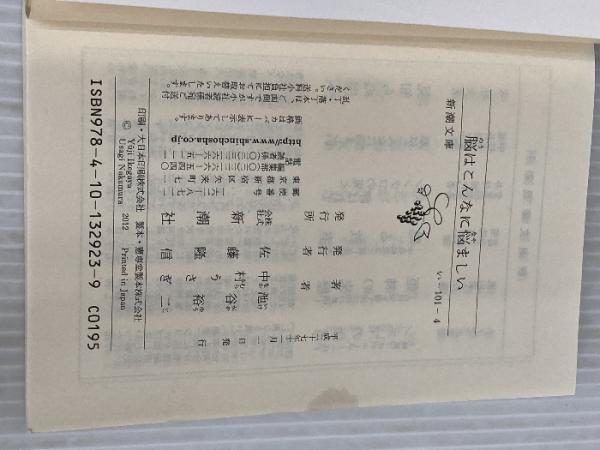 脳はこんなに悩ましい
新潮文庫
い-101-4
平成二十七年十一月一日発行
著者 池谷裕二
中村うさぎ
発行者 佐藤隆信
発行所 株式会社 新潮社
郵便番号
東京都新宿区矢来町七一
電話
http://www.shinchosha.co.jp
価格はカバーに表示してあります。
乱丁・落丁本は、ご面倒ですが小社読者係宛ご送付
ください。送料小社負担にてお取替えいたします。
印刷・大日本印刷株式会社 製本・憲専堂製本株式会社
© Yûji Ikegaya
Usagi Nakamura 2012 Printed in Japan
ISBN978-4-10-132923-9 C0195